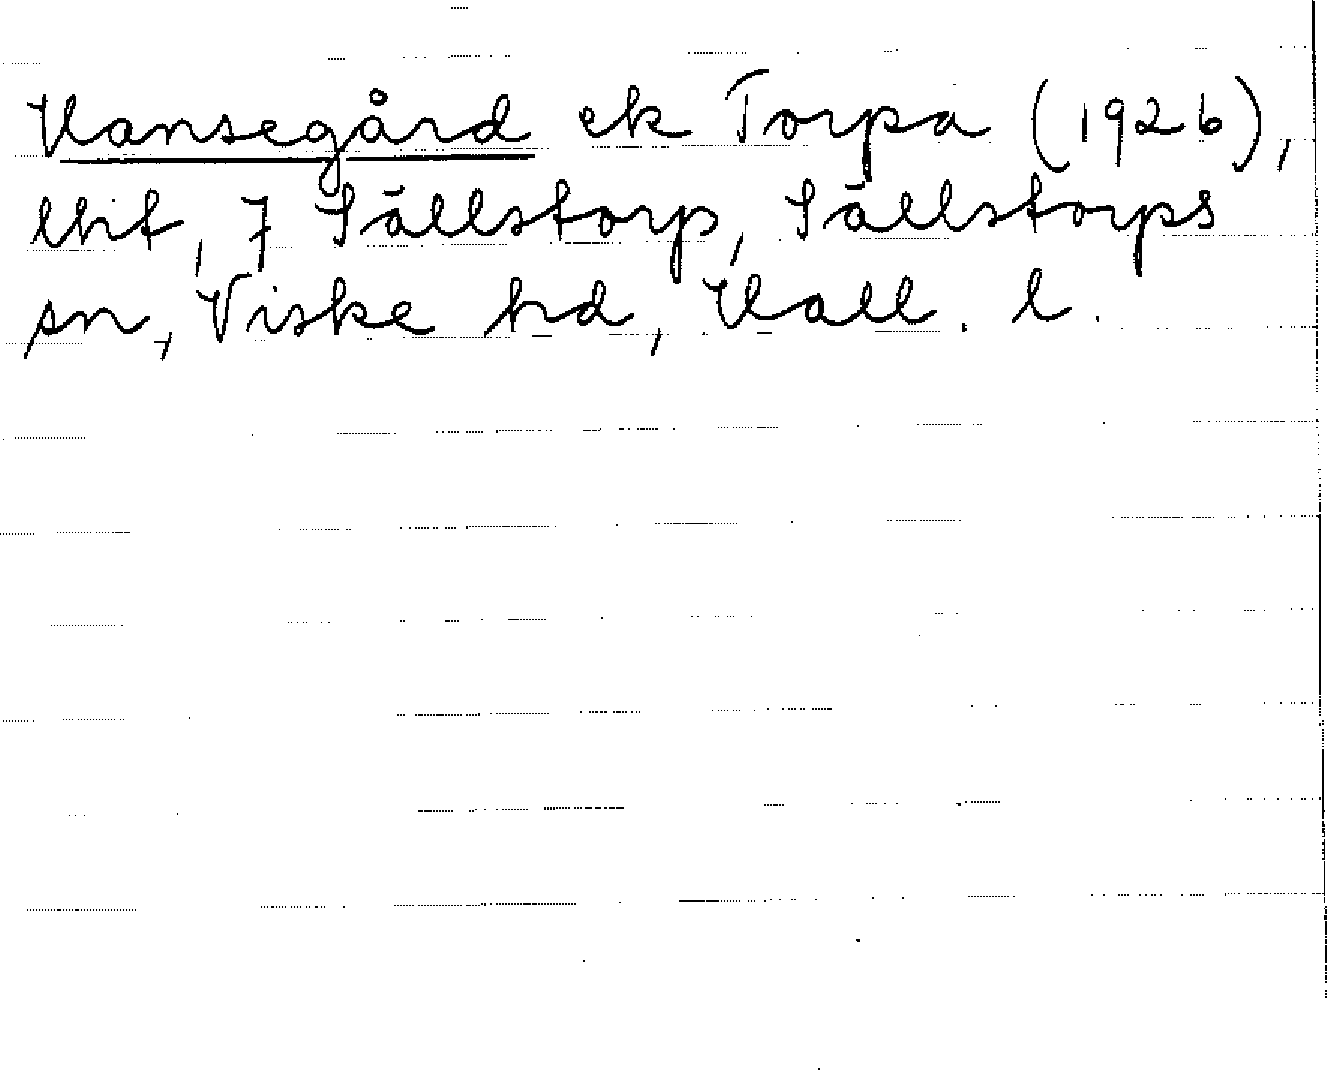 Hansegård ek Torpa (1926),
lht, 7 Sällstorp, Sällstorps
sn, Viske hd, Hall. l.